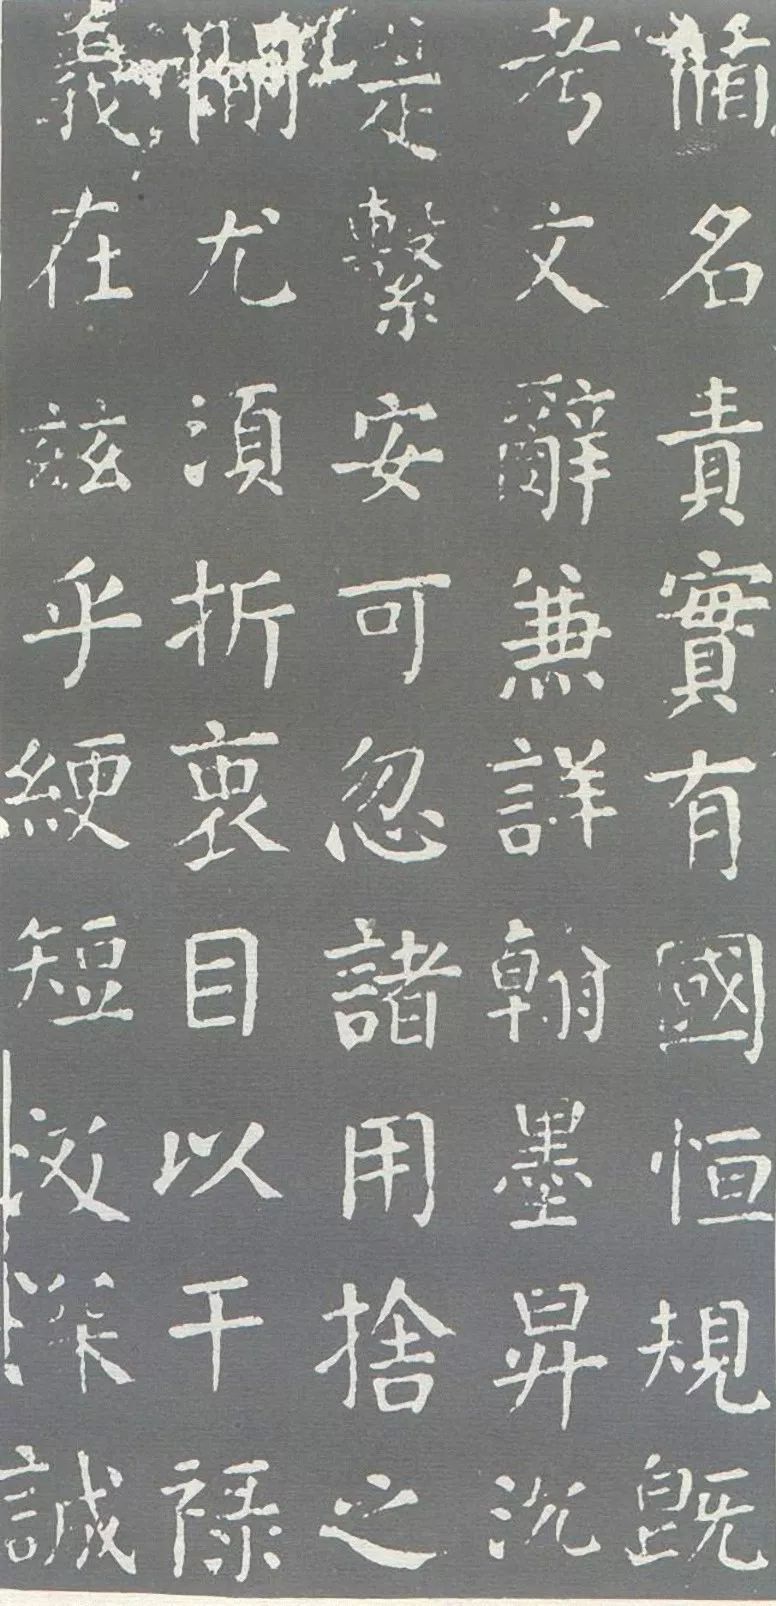 循名責實有國恒規既
考文辭兼詳翰墨昇沉
是繫安可忽諸用捨之
間尤須折衷目以干禄
義在兹乎綆短汲深誠